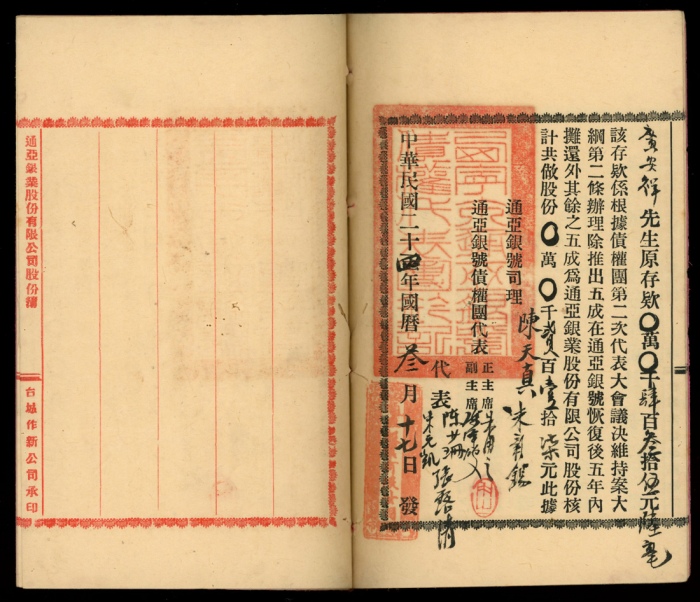 廣安祥先生原存欵〇萬〇千肆百叁拾伍元陸毫
該存欵係根據債權團第二次代表大會議決維持案大
綱第二條辦理除推出五成在通亞銀號恢復後五年內
攤還外其餘之五成爲通亞銀業股份有限公司股份核
計共做股份〇萬〇千貳百壹拾柒元此據
通亞銀號司理 陳天真
通亞銀號債權團代表
正主席
副主席
代表
中華民國二十四年國曆叁月十七日發
通亞銀業股份有限公司股份簿
台城作新公司承印